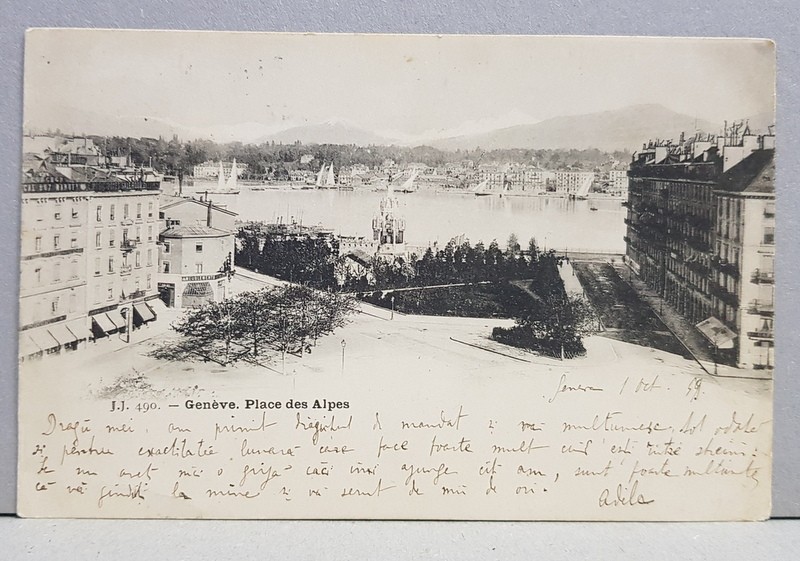 J.J. 490. — Genève. Place des Alpes
Geneva 1 Oct. 99
Dragii mei, am primit de mandat și vă mulțumesc. Tot odată
și pentru exactitatea lunară care face foarte mult când ești între streini.
de nu aveți nici o grijă căci îmi ajunge cât am, sunt foarte
că vă gândiți la mine și vă sărut de mii de ori.
Adela